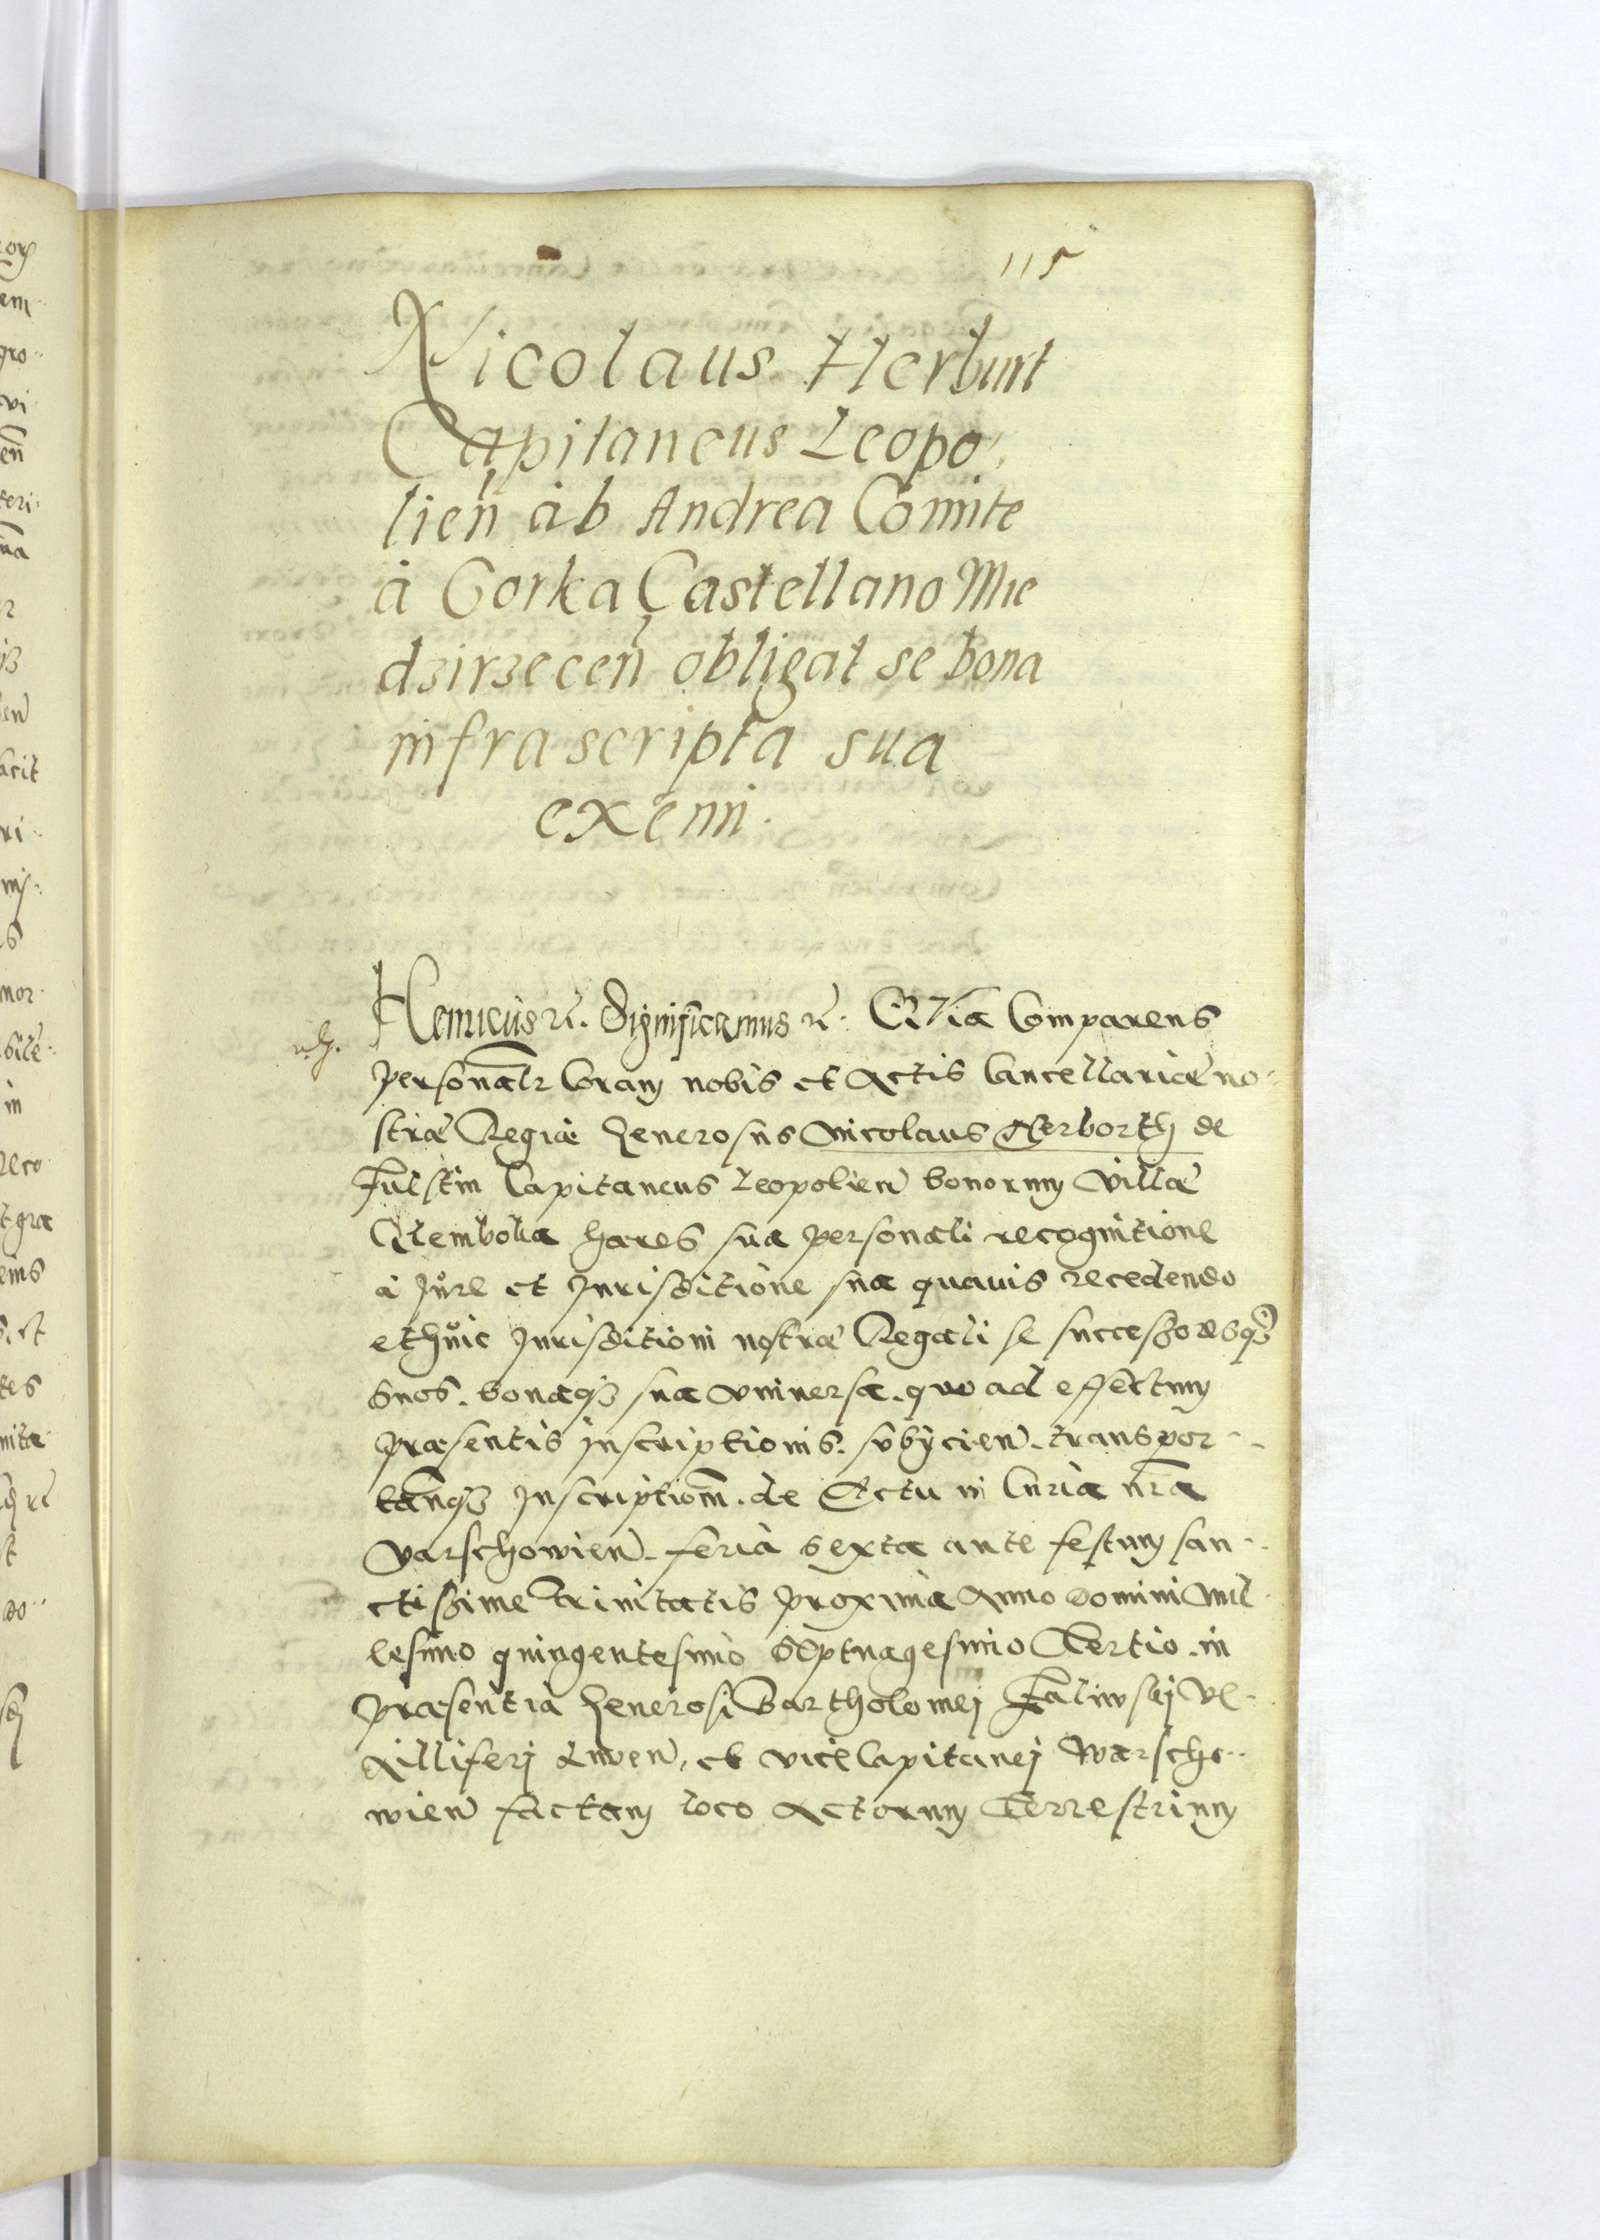 115
Nicolaus Herburt
Capitaneus Leopo,
lien̄ ab Andrea Comite
à Gorka Castellano Mie
dzirzecen̄ obligat se bona
infra scripta sua
exemi.
Henricus rc̄. Significamus rc̄. Quia Comparens
personalr Coram nobis et Actis Cancellariæ no-
stræ Regiæ Generosus Nicolaus Herborth de
Fulstin Capitaneus Leopolien̄ bonorum Villæ
hæres sua personali recognitione
à Jure et Jurisditione sua quavis recedendo
et huic Jurisditioni nostræ Regali se successoresqȝ
suos. bonaqȝ sua universa. quo ad effectum
præsentis inscriptionis. subÿcien̄. transpor-
tanqȝ Inscriptionm̄. de Actu in Curia nr̄a
Varschowien̄. feria sexta ante festum san-
ctissime Trinitatis proxima Anno Domini Mil
lesimo quingentesimo Septuagesimo Tertio. in
præsentia Generosi Bartholomej Ve-
xilliferj Liwen̄, et viceCapitanej Warscho-
wien̄ factam loco Actorum Terrestrium